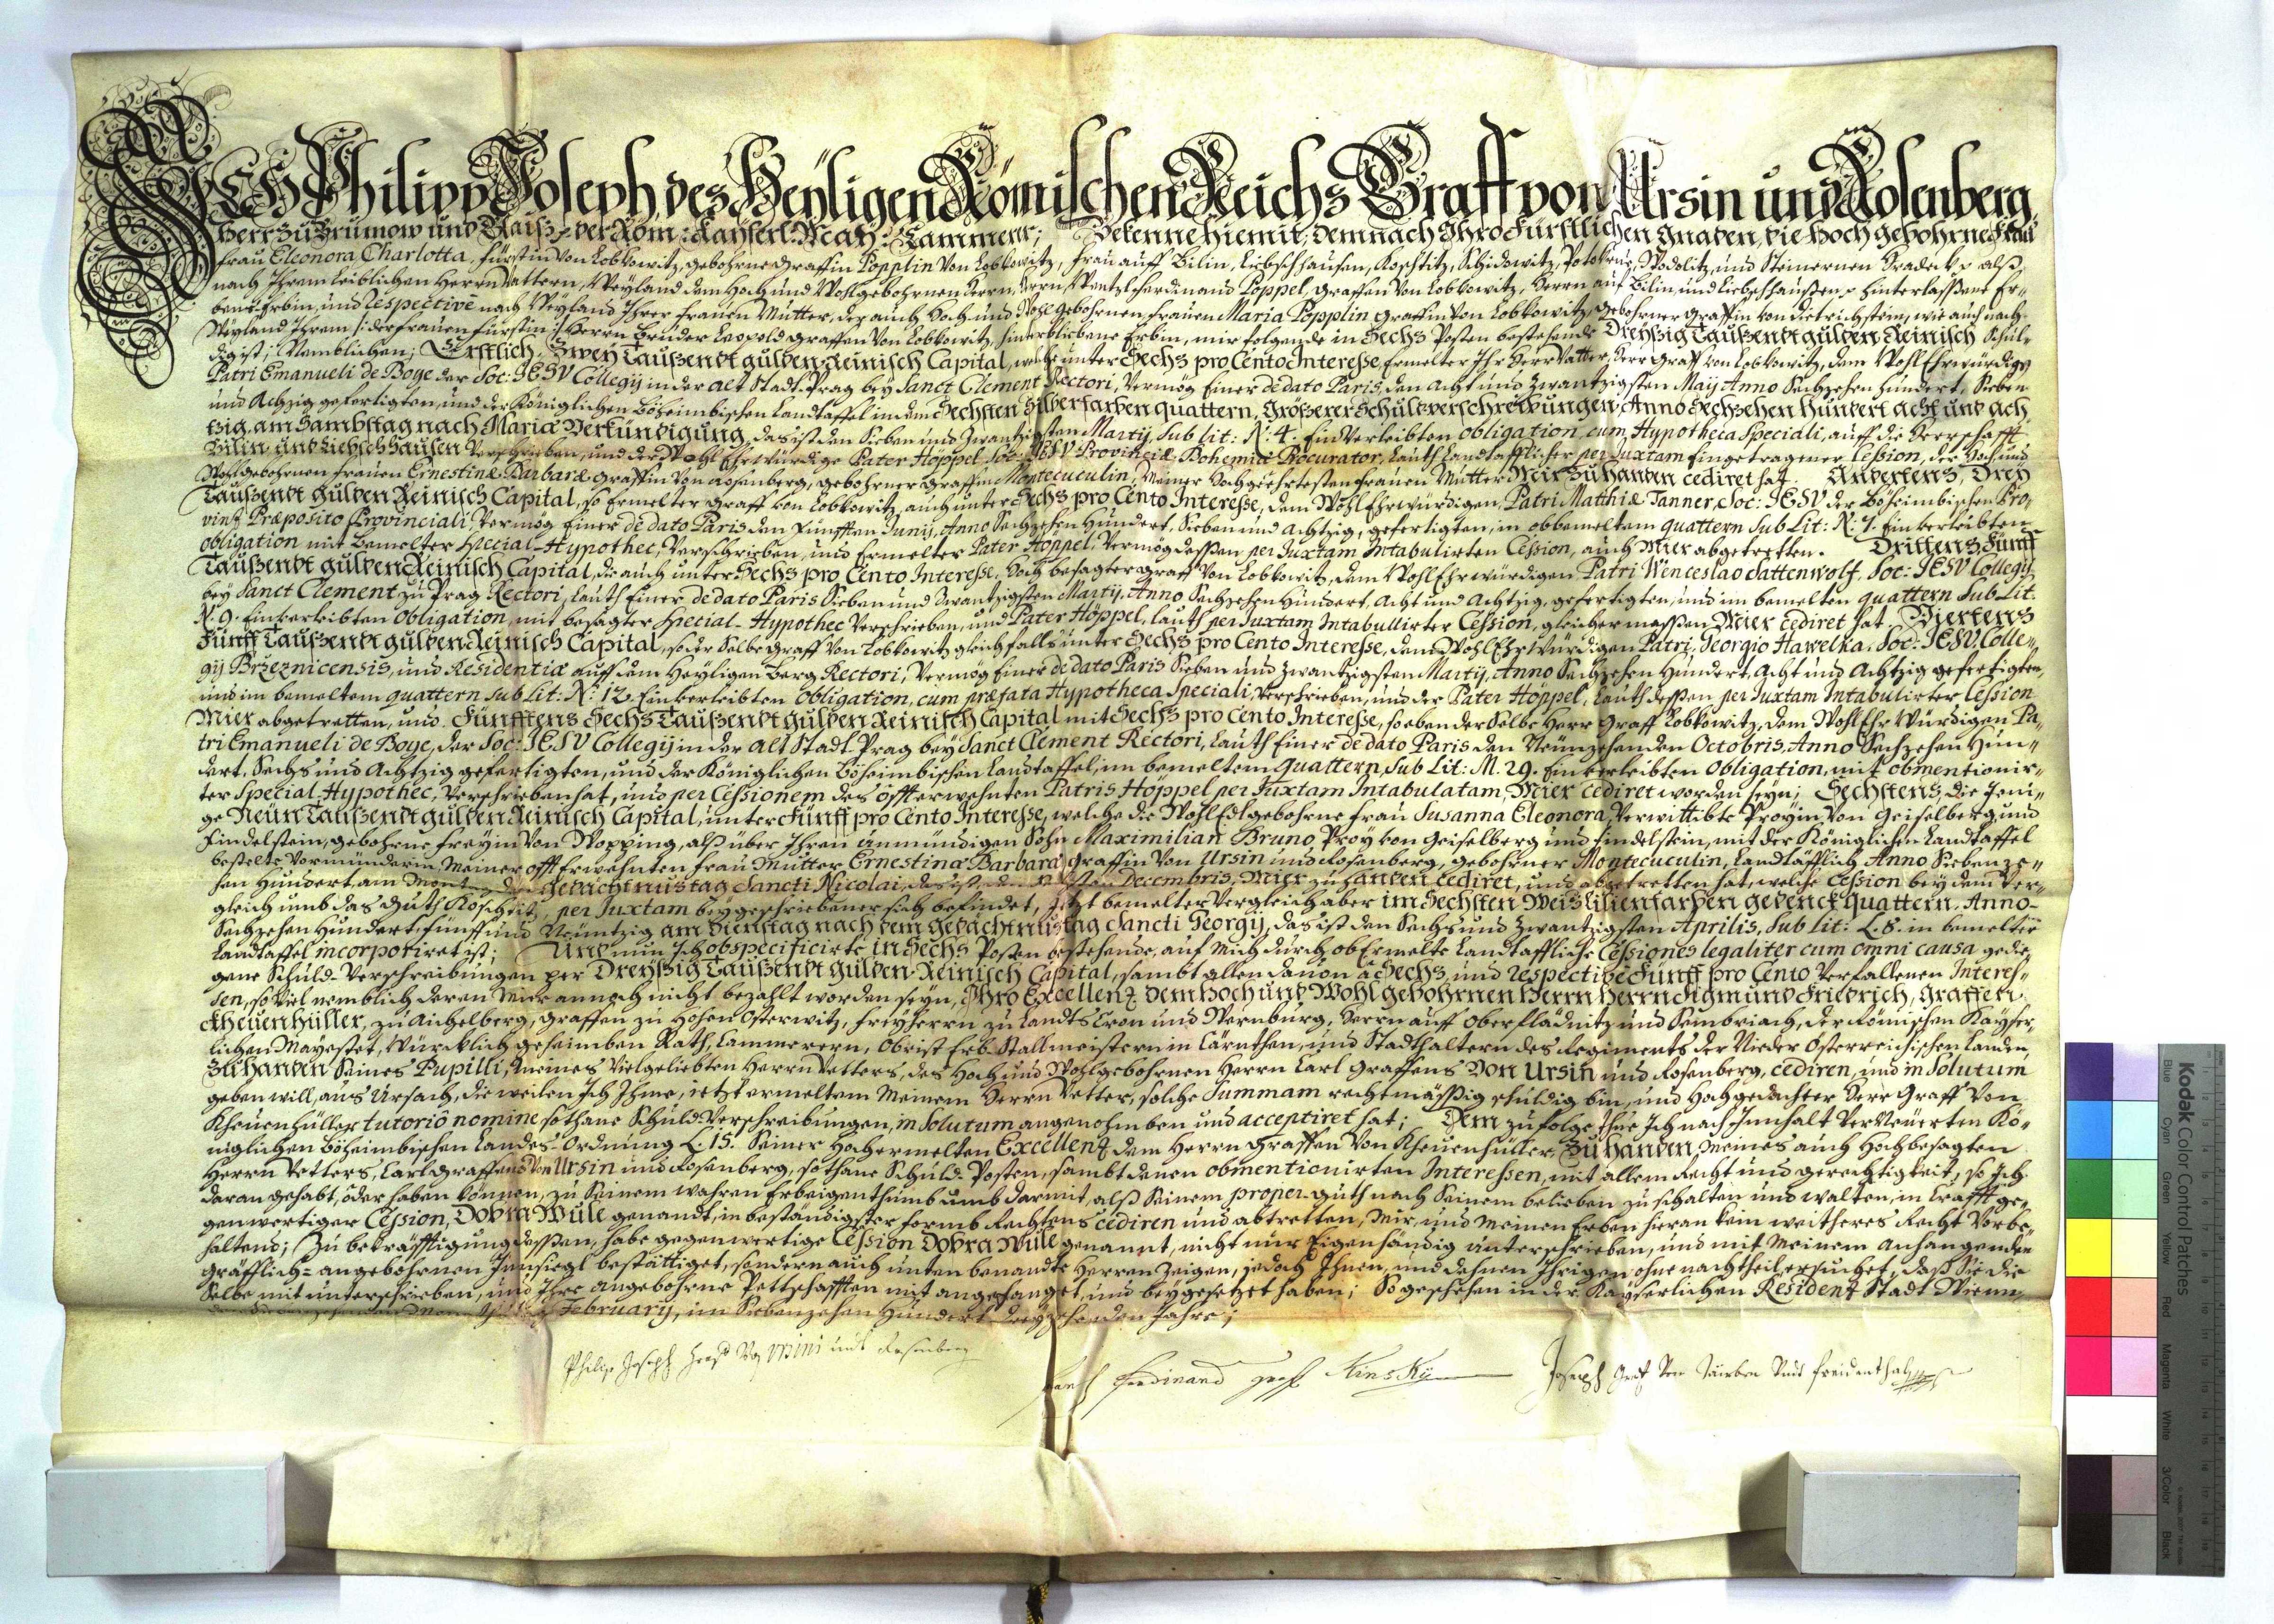 ICH Philipp Joseph, des Heyligen Römischen Reichs Graff von Ursin und Rosenberg
Herr zu Brumow und Raiß, der Röm: Kayserl: May: Cammerer; Bekenne hiemit; demnach Ihro Fürstlichen Gnaden, die Hoch gebohrne Frau
Frau Eleonora Charlotta, Fürstin von Lobkowitz, gebohrne Graffin Popplin von Lobkowitz, Frau auff Bilin, Liebschhausen, Koschtitz, Schidowitz, Wodolitz, und Steinernen Hradeck, alß
nach Ihrem leiblichen Herrn Vattern, Weyland dem Hoch und Wohlgebohrnen Herrn, Herrn Wentzl Ferdinand Poppel, Graffen von Lobkowitz, Herrn auf Bilin, und Liebschhaußen hinterlaßene Er-
bens-Erbin, und respectivè nach Weyland Ihrer Frauen Mutter, der auch Hoch und Wohl gebohrnen, Frauen Maria Popplin Graffin von Lobkowitz, gebohrner Graffin von Dietrichstein, wie auch nach
Weyland Ihrem /: der Frauen Fürstin :/ Herrn Bruder Leopold Graffen von Lobkowitz, hinterbliebene Erbin, mir folgende in Sechs Posten bestehende Dreyßig Taußendt gulden Reinisch Schul-
dig ist; Nemblichen; Erstlich, Zwey Taußendt gulden Reinisch Capital, welche unter Sechs pro Cento Interesse, Ermelter Ihr Herr Vatter, Herr Graff von Lobkowitz, dem Wohl Ehrwürdigen
Patri Emanueli de Boye der Soc: JESV Collegij in der Alt Stadt Prag bey Sanct Clement Rectori, Vermög Einer de dato Paris, den Acht und Zwantzigsten Maij Anno Sechzehen Hundert, Sieben
und Achzig gefertigten, und der Königlichen Böheimbischen Landtaffel in dem Sechsten Silberfarben quattern, Größerer Schuldverschreibungen, Anno Sechzehen Hundert acht und ach
tzig, am Sambstag nach Mariæ Verkündigung, das ist den Sieben und Zwantzigsten Martij, Sub lit: N: 4. Einverleibten Obligation, cum Hypotheca Speciali, auff die Herrschafft
Bilin, und Liebschhausen Verschrieben, und der Wohl Ehrwürdige Pater Höppel, Soc: JESV Provinciæ Bohemiæ Procurator, Lauth Landtafflicher per Juxtam Eingetragener Cession, der Hoch und
Wohlgebohrnen Frauen Ernestinæ Barbaræ Graffin von Rosenberg, gebohrner Graffin Montecuculin, Meiner Hochgeehrtesten Frauen Mutter Mier zu handen cediret hat. Andertens, Drey
Taußendt gulden Reinisch Capital, so Ermelter Graff von Lobkowitz, auch unter Sechs pro Cento Interesse, dem Wohl Ehrwürdigen, Patri Matthiæ Tanner, Soc: JESV der Böheimbischen Pro-
vintz Præposito Provinciali, Vermög Einer de dato Paris den Funfften Junij, Anno Sechzehen Hundert, Sieben und Achtzig, gefertigten, in obbemeltem quattern Sub Lit: N: 7. Einverleibten
obligation mit Bemelter Special-Hypothec, Verschrieben, und Ermelter Pater Höppel, Vermög deßen per Juxtam Intabulirten Cession, auch Mier abgetretten. Drittens, Fünff
Taußendt gulden Reinisch Capital, die auch unter Sechs pro Cento Interesse, Hoch besagter Graff von Lobkowitz, dem Wohl Ehrwürdigen Patri Wenceslao Sattenwolf, Soc: JESV Collegij
bey Sanct Clement zu Prag Rectori, Lauth Einer de dato Paris Sieben und Zwantzigsten Martij, Anno Sechzehen Hundert, Acht und Achtzig, gefertigten, und im bemelten quattern Sub Lit:
N: 9. Einverleibten Obligation, mit besagter Special-Hypothec Verschrieben, und Pater Höppel, Lauth per Juxtam Intabullirter Cession, gleichermassen Mier cediret hat. Viertens
Fünff Taußendt gulden Reinisch Capital, so der Selbe Graff von Lobkowitz gleichfalls unter Sechs pro Cento Interesse, dem Wohl Ehrwürdigen Patri, Georgio Hawelka, Soc: JESV Colle-
gij Brzeznicensis, und Residentiæ auff dem Heyligen Berg Rectori, Vermög Einer de dato Paris Sieben und Zwantzigsten Martij, Anno Sechzehen Hundert, Acht und Achtzig gefertigten,
und im bemeltem quattern Sub Lit: N: 12. Einverleibten Obligation, cum præfata Hypotheca Speciali, Verschrieben, und der Pater Höppel, Lauth deßen per Juxtam Intabulirter Cession
Mier abgetretten, und. Fünfftens Sechs Taußendt gulden Reinisch Capital mit Sechs pro Cento Interesse, so eben der Selbe Herr Graff Lobkowitz, dem Wohl Ehrwürdigen Pa-
tri Emanueli de Boye, der Soc: JESV Collegij in der Alt Stadt Prag bey Sanct Clement Rectori, Lauth Einer de dato Paris den Neünzehenden Octobris, Anno Sechzehen Hun-
dert, Sechs und Achtzig gefertigten, und der Königlichen Böheimbischen Landtaffel, im bemeltem Quattern, Sub Lit: M. 29. Einverleibten Obligation, mit obmentionir-
ter Special-Hypothec, Verschrieben hat, und per Cessionem des öffterwehnten Patris Höppel per Juxtam Intabulatam, Mier cediret worden seyn; Sechstens, die Jeni-
ge Neün Taußendt gulden Reinisch Capital, unter Fünff pro Cento Interesse, welche die Wohl Edlgebohrne Frau Susanna Eleonora, Verwittibte Fröyin von Geiselberg und
Findelstein, gebohrne Freyin von Wopping, alß über Ihren unmündigen Sohn Maximilian Bruno, Fröy von Geiselberg und Findelstein, mit der Königlichen Landtaffel
bestelte Vormünderin, Meiner offt Erwehnten Frau Mutter Ernestinæ Barbaræ, Graffin von Ursin und Rosenberg, gebohrner Montecuculin, Landtäfflich Anno Siebenze-
hen Hundert, am Gedächtnustag Sancti Nicolai, Decembris, Mier zu handen cediret, und abgetretten hat, welche Cession bey dem Ver-
gleich umb das Guth Koschtitz, per Juxtam beygeschriebener sich befindet, Jetzt bemelter Vergleich aber im Sechsten Weis Lilienfarben gedenck quattern, Anno
Sechzehen Hundert, fünff und Neüntzig am Dienstag nach dem Gedächtnustag Sancti Georgij, das ist den Sechs und Zwantzigsten Aprilis, Sub lit: L. 8. in bemelter
Landtaffel incorporiret ist; Und nun Ich obspecificirte in Sechs Posten bestehende, auf Mich durch ob Ermelte Landtaffliche Cessiones legaliter cum omni causa gedie-
gene Schuld-Verschreibungen per Dreyßig Taußendt gulden Reinisch Capital, sambt allen davon à Sechs, und respectivè Fünff pro Cento Verfallenen Interes-
sen, so viel nemblich deren Mier annoch nicht bezahlt worden seyn, Ihro Excellenz dem Hoch und Wohl gebohrnen Herrn Herrn Sigmund Friedrich, Graffen
Kheuenhüller, zu Aichelberg, Graffen zu Hohen Osterwitz, Freyherrn zu Landts Cron und Wernburg, Herrn auff Oberflädnitz und Sembriach, der Römischen Kayser-
lichen Mayestet, Würcklich geheimben Rath, Cammerern, Obrist Erb-Stallmeistern in Cärnthen, und Stadthaltern des Regiments der Nieder Österreichischen Landen,
zu handen Seines Pupilli, Meines Vielgeliebten Herrn Vetters, des Hoch und Wohlgebohrnen Herrn Carl Graffens von Ursin und Rosenberg, cediren, und in Solutum
geben will, aus Ursach, die weilen Ich Ihme, ietzt ermeltem Meinem Herrn Vetter, solche Summam rechtmäßig schuldig bin, und Hochgedachter Herr Graff von
Kheuenhüller tutoriò nomine sothane Schuld-Verschreibungen, in Solutum angenohmben und acceptiret hat; Dem zufolge thue Ich nach Innhalt Verneüerten Kö-
niglichen Böheimbischen Landes-Ordnung L. 15. Seiner Hochermelten Excellenz dem Herrn Graffen von Kheuenhüller, zu handen, meines auch Hochbesagten
Herrn Vetters, Carl Graffens von Ursin und Rosenberg, sothane Schuld-Posten, sambt denen obmentionirten Interessen, mit allem Recht und gerechtigkeit, so Ich
daran gehabt, oder haben können, zu Seinem wahren Erbeigenthumb umb darmit, alß Seinem proper-guth nach Seinem belieben zu schalten und walten, in Crafft ge-
genwertiger Cession, Dobra Wüle genandt, in beständigster formb Rechtens cediren und abtretten, Mir, und Meinen Erben hieran kein weitheres Recht Vorbe-
haltend; Zu bekräfftigung deßen, habe gegenwertige Cession Dobra Wüle genannt, nicht nur Eigenhändig unterschrieben, und mit Meinem anhangenden
gräfflich-angebohrnen Innsiegl bestättiget, sondern auch unten benandte Herren Zeugen, jedoch Ihnen, und dehnen Ihrigen ohne nachtheil, ersuchet, daß Sie die
Selbe mit unterschrieben, und Ihre angebohrne Pettschafften mit angehanget, und beygesetzet haben; So geschehen in der Kayserlichen Residentz Stadt Wienn
February, im Siebenzehen Hundert Dreyzehenden Jahre;
Philip Joseph Graff Von Ursini und Rosenberg
Frantz Ferdinand Graf Kinsky
Joseph Graf Von Würben Und Freidenthal
Kodak Color Control Patches
Blue Cyan Green Yellow Red Magenta White 3/Color Black